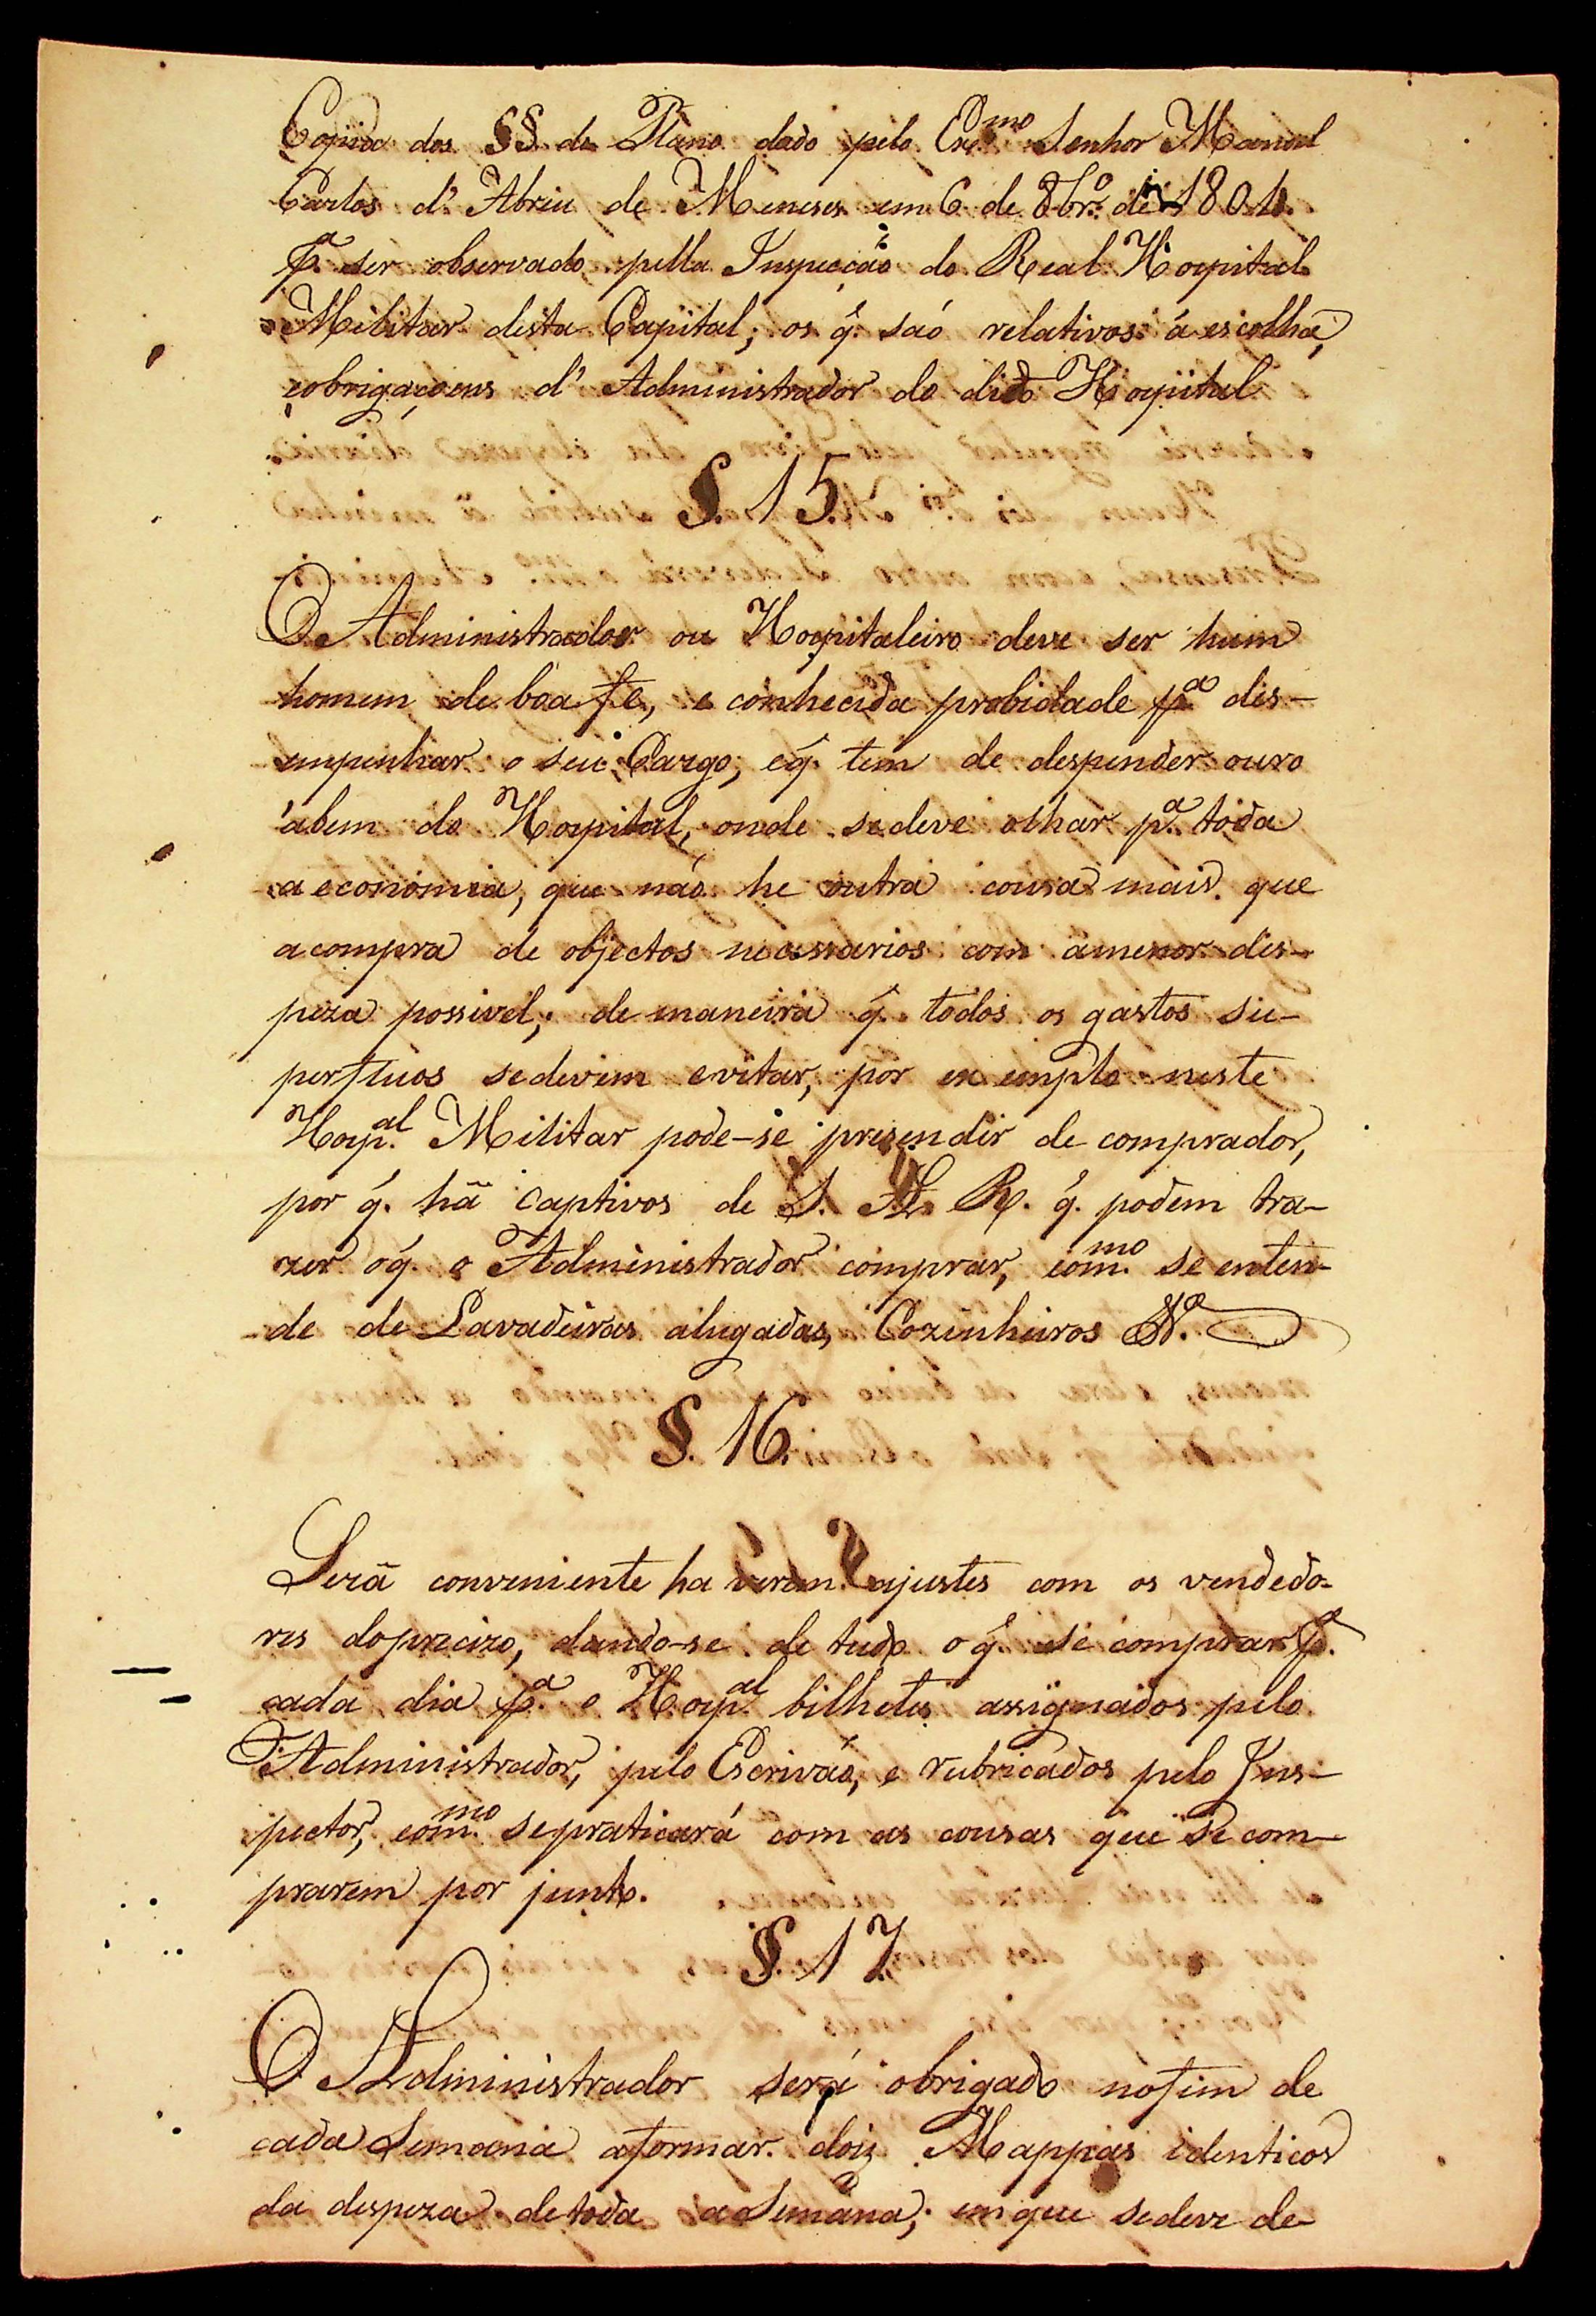 Copia dos §§ do Plano dado pelo Exmo Senhor Manoel
Carlos d'Abreu de Meneses em 6 de 8br.o de 1804.
p.a ser observado pella Inspecção do Real Hospital
Militar desta Capital; os q. saó relativos á escolha,
eobrigaçoens d'Administrador do dito Hospital
§. 15.
O Administrador ou Hospitaleiro deve ser hum
homem de boa fe, e conhecida probidade p.a des-
empenhar o seu Cargo, eq. tem de despender ouro
ábem do Hospital, onde sedeve olhar p.a toda
a economia, que não he outra cousa mais que
acompra de objectos necessarios com amenor des-
peza possivel; de maneira q. todos os gastos su-
perfluos sedevem evitar, por exemplo neste
Hosp.al Militar pode-se presendir de comprador,
por q. hã Captivos de S. A. R. q. podem tra-
zer oq. o Administrador comprar, eom.mo se enten-
de de Lavadeiras alugadas, Cozinheiros &.a
§. 16.
Serã conveniente ha verem ajustes com os vendedo-
res doprecizo, dando-se de tudo o q. se comprar p.a
cada dia p.a o Hosp.al bilhetes assignados pelo
Administrador, pelo Escrivaó, e rubricados pelo Ins-
pector, eom.mo sepraticará com as cousas que se com-
prarem por junto.
§. 17.
O Administrador será obrigado nofim de
cada Semana aformar doiz Mappas identicos
da despeza detoda aSemana; emque sedeve de-